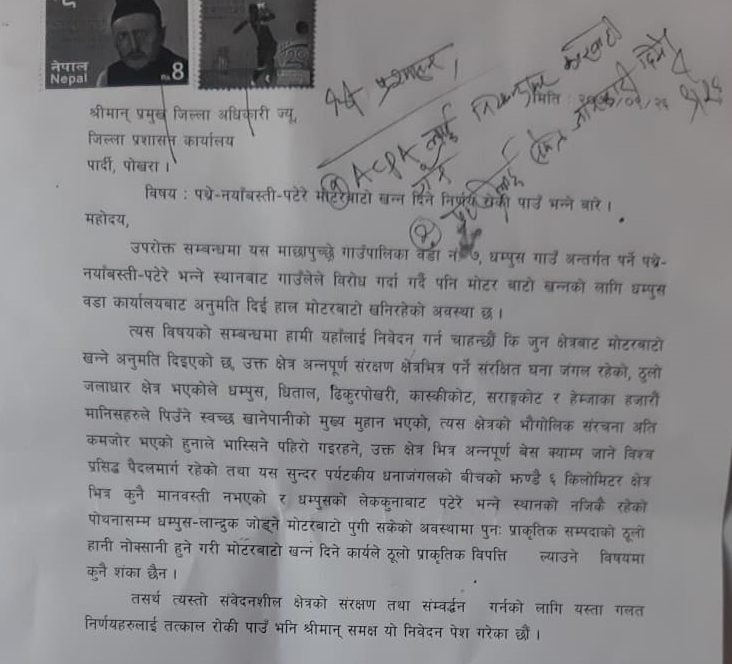 नेपाल
Nepal
Rs 8
श्री प्रशासन,
श्रीमान् प्रमुख जिल्ला अधिकारी ज्यू,
मिति :
जिल्ला प्रशासन कार्यालय
पार्दी, पोखरा ।
ACPA लाई
विषय : पथ्रे-नयाँबस्ती-पटेरे मोटरबाटो खन्न दिने निर्णय रोकी पाउँ भन्ने बारे ।
महोदय,
उपरोक्त सम्बन्धमा यस माछापुच्छ्रे गाउँपालिका वडा नं ७, धम्पुस गाउँ अन्तर्गत पर्ने पथ्रे-
नयाँबस्ती-पटेरे भन्ने स्थानबाट गाउँलेले विरोध गर्दा गर्दै पनि मोटर बाटो खन्नको लागि धम्पुस
वडा कार्यालयबाट अनुमति दिई हाल मोटरबाटो खनिरहेको अवस्था छ ।
त्यस विषयको सम्बन्धमा हामी यहाँलाई निवेदन गर्न चाहन्छौं कि जुन क्षेत्रबाट मोटरबाटो
खन्ने अनुमति दिइएको छ, उक्त क्षेत्र अन्नपूर्ण संरक्षण क्षेत्रभित्र पर्ने संरक्षित घना जंगल रहेको, ठुलो
जलाधार क्षेत्र भएकोले धम्पुस, धिताल, ढिकुरपोखरी, कास्कीकोट, सराङ्कोट र हेम्जाका हजारौं
मानिसहरुले पिउँने स्वच्छ खानेपानीको मुख्य मुहान भएको, त्यस क्षेत्रको भौगोलिक संरचना अति
कमजोर भएको हुनाले भास्सिने पहिरो गइरहने, उक्त क्षेत्र भित्र अन्नपूर्ण बेस क्याम्प जाने विश्व
प्रसिद्ध पैदलमार्ग रहेको तथा यस सुन्दर पर्यटकीय धनाजंगलको बीचको झण्डै ६ किलोमिटर क्षेत्र
भित्र कुनै मानवस्ती नभएको र धम्पुसको लेककुनाबाट पटेरे भन्ने स्थानको नजिकै रहेको
पोथनासम्म धम्पुस-लान्द्रुक जोड्ने मोटरबाटो पुगी सकेको अवस्थामा पुनः प्राकृतिक सम्पदाको ठूलो
हानी नोक्सानी हुने गरी मोटरबाटो खन्न दिने कार्यले ठूलो प्राकृतिक विपत्ति ल्याउने विषयमा
कुनै शंका छैन ।
तसर्थ त्यस्तो संवेदनशील क्षेत्रको संरक्षण तथा सम्वर्द्धन गर्नको लागि यस्ता गलत
निर्णयहरुलाई तत्काल रोकी पाउँ भनि श्रीमान् समक्ष यो निवेदन पेश गरेका छौं ।